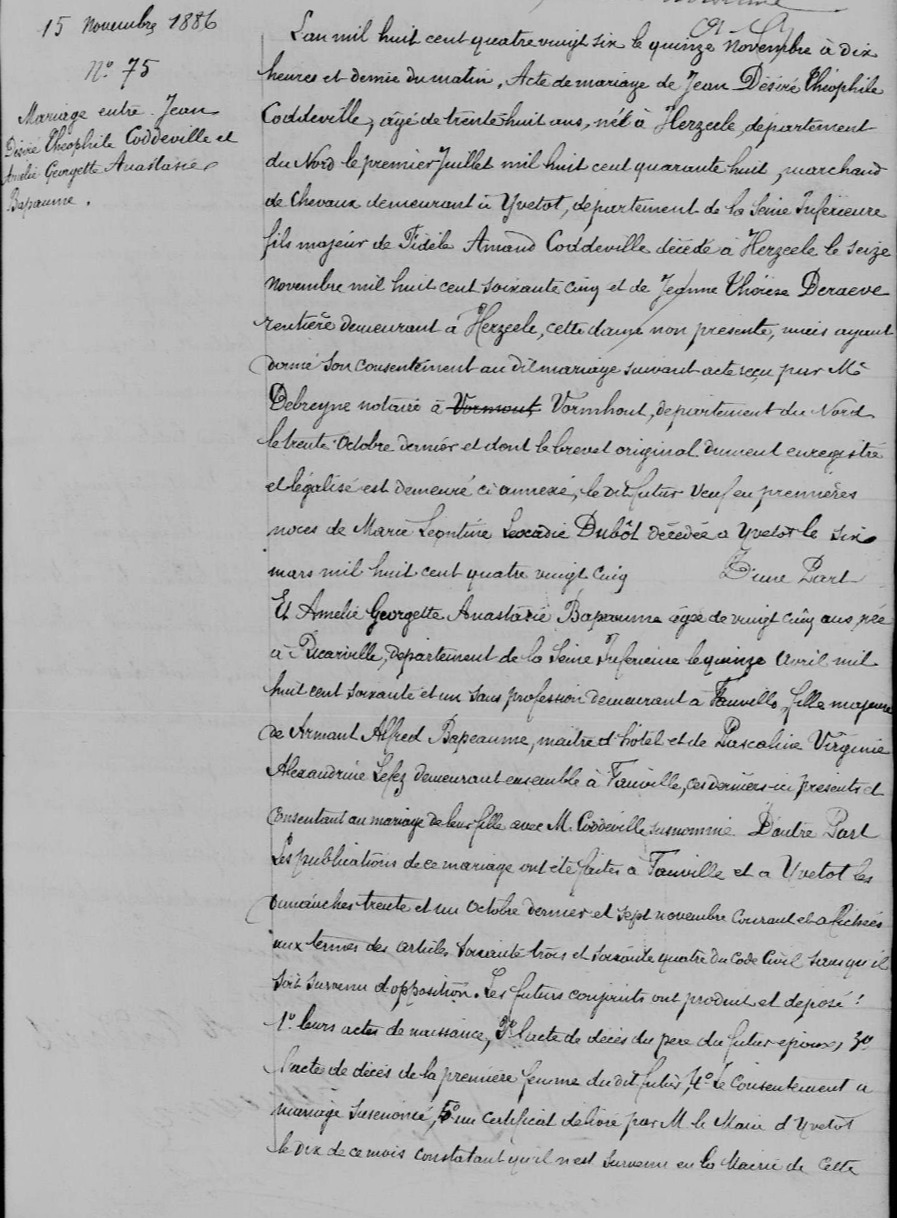 15 Novembre 1886
N° 75
Mariage entre Jean
Désiré Théophile Coddeville et
Amélie Georgette Anastasie
Bapaume.
L'an mil huit cent quatre vingt six le quinze Novembre à dix
heures et demie du matin, Acte de mariage de Jean Désiré Théophile
Coddeville, âgé de trente huit ans, né à Herzeele, département
du Nord le premier Juillet mil huit cent quarante huit, marchand
de Chevaux demeurant à Yvetot, département de la Seine Inférieure
fils majeur de Fidèle Amand Coddeville décédé à Herzeele le seize
Novembre mil huit cent soixante cinq et de Jeanne Thérèse Deraeve
rentière demeurant à Herzeele, cette dame non présente, mais ayant
donné son consentement au dit mariage suivant acte reçu par Me
Debreyne notaire à Vormout Vormhout, département du Nord
le trente Octobre dernier et dont le brevet original dument enregistré
et légalisé est demeuré ci annexé, le dit futur Veuf en premières
noces de Marie Léontine Léocadie Dubôt décédée à Yvetot le six
mars mil huit cent quatre vingt cinq D'une Part
Et Amélie Georgette Anastasie Bapaume âgée de vingt cinq ans, née
à Ricarville, département de la Seine Inférieure le quinze Avril mil
huit cent soixante et un sans profession demeurant à Fauville, fille majeure
de Armant Alfred Bapeaume, maître d'hôtel et de Pascaline Virginie
Alexandrine Lefez demeurant ensemble à Fauville, ces derniers ici présents et
consentant au mariage de leur fille avec M. Coddeville susnommé D'autre Part
Les publications de ce mariage ont été faites à Fauville et à Yvetot les
dimanches trente et un Octobre dernier et sept novembre courant et affichées
aux termes des articles soixante trois et soixante quatre du Code Civil sans qu'il
soit survenu d'opposition. Les futurs conjoints ont produit et déposé :
1° leurs actes de naissance, 2° l'acte de décès du père du futur époux, 3°
l'acte de décès de la première femme du dit futur, 4° Le Consentement à
mariage susénoncé, 5° un certificat délivré par M le Maire d'Yvetot
le dix de ce mois constatant qu'il n'est survenu en la Mairie de cette